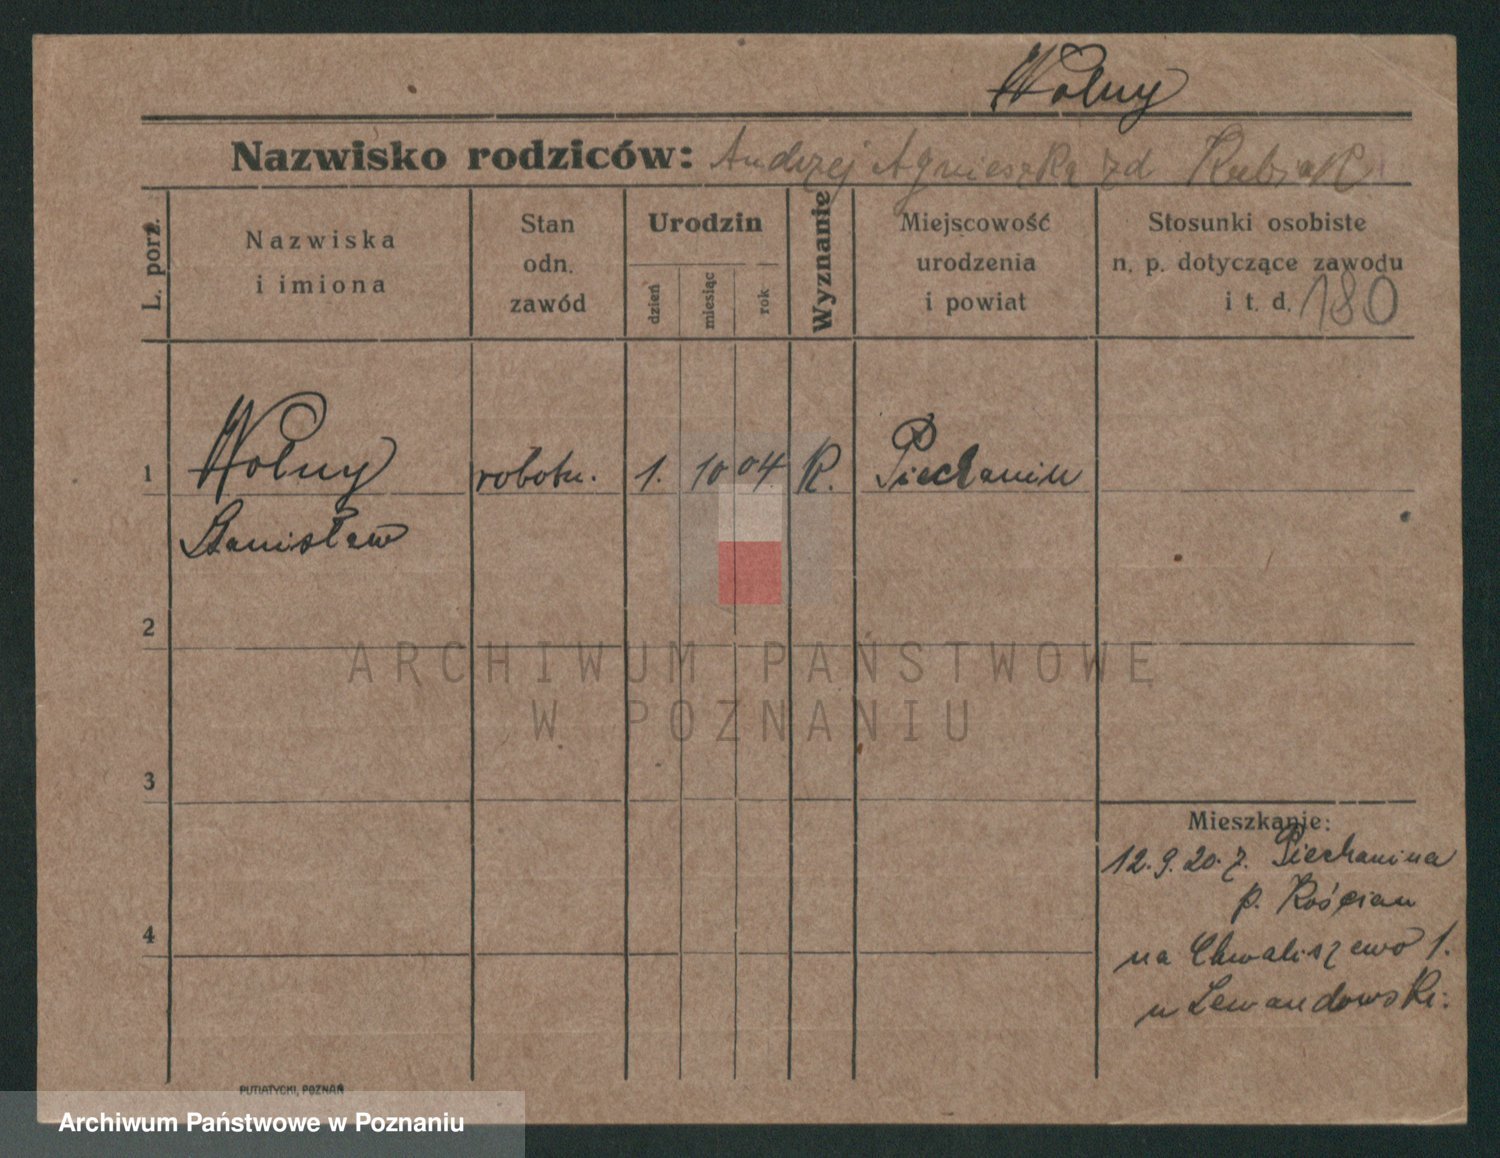 Wolny
Nazwisko rodziców: Andrzej Agnieszka zd Kubiak
L. porz.
Nazwiska
i imiona
Stan
odn.
zawód
Urodzin
dzień
miesiąc
rok
Wyznanie
Miejscowość
urodzenia
i powiat
Stosunki osobiste
n. p. dotyczące zawodu
i t. d. 180
1 Wolny robotn. 1. 10 04 K. Piechanin
Stanisław
2
ARCHIWUM PAŃSTWOWE
W POZNANIU
3
Mieszkanie:
12.9.20. z. Piechanina
p. Kościan
4
na Chwaliszewo 1.
u Lewandowski.
PUTIATYCKI, POZNAŃ
Archiwum Państwowe w Poznaniu